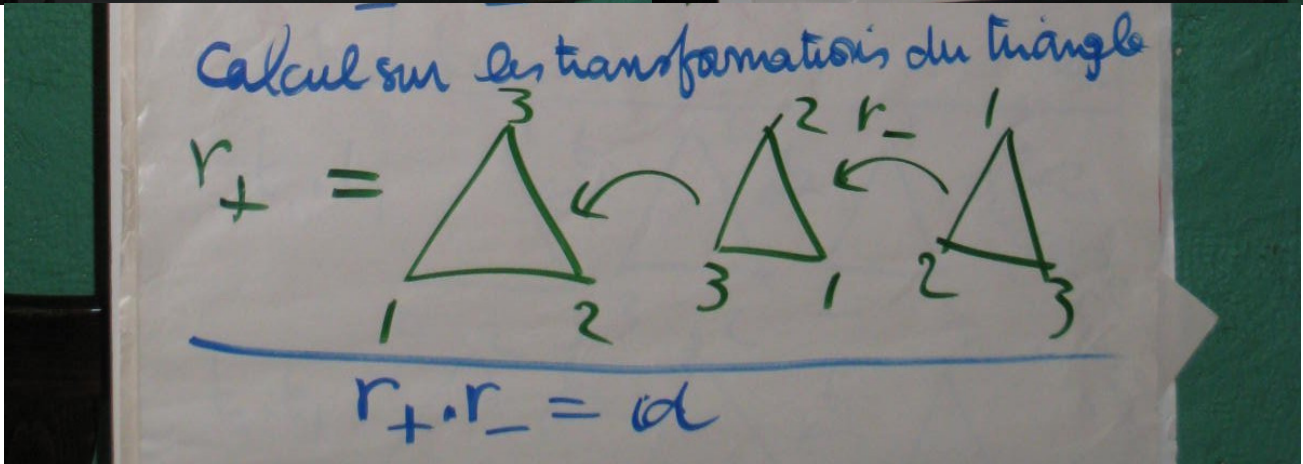 Calcul sur les transformations du triangle
3 2 r_ 1
r+ =
3 1 2 3
1 2
r+ . r_ = id